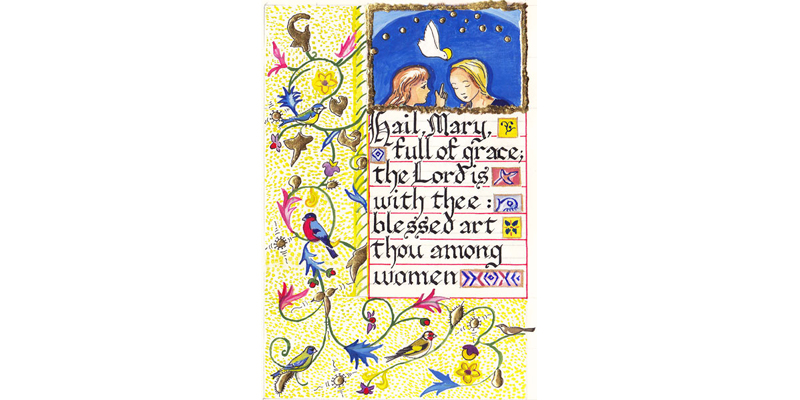 Hail, Mary,
full of grace;
the Lord is
with thee :
blessed art
thou among
women